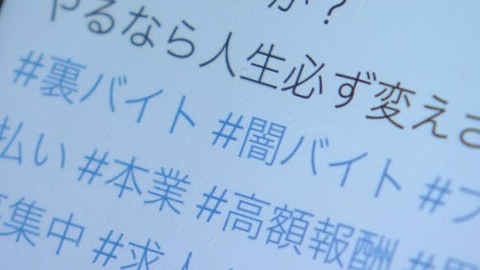 か?
やるなら人生必ず変えさ
#裏バイト #闇バイト #フ
払い #本業 #高額報酬 #
募集中 #求人